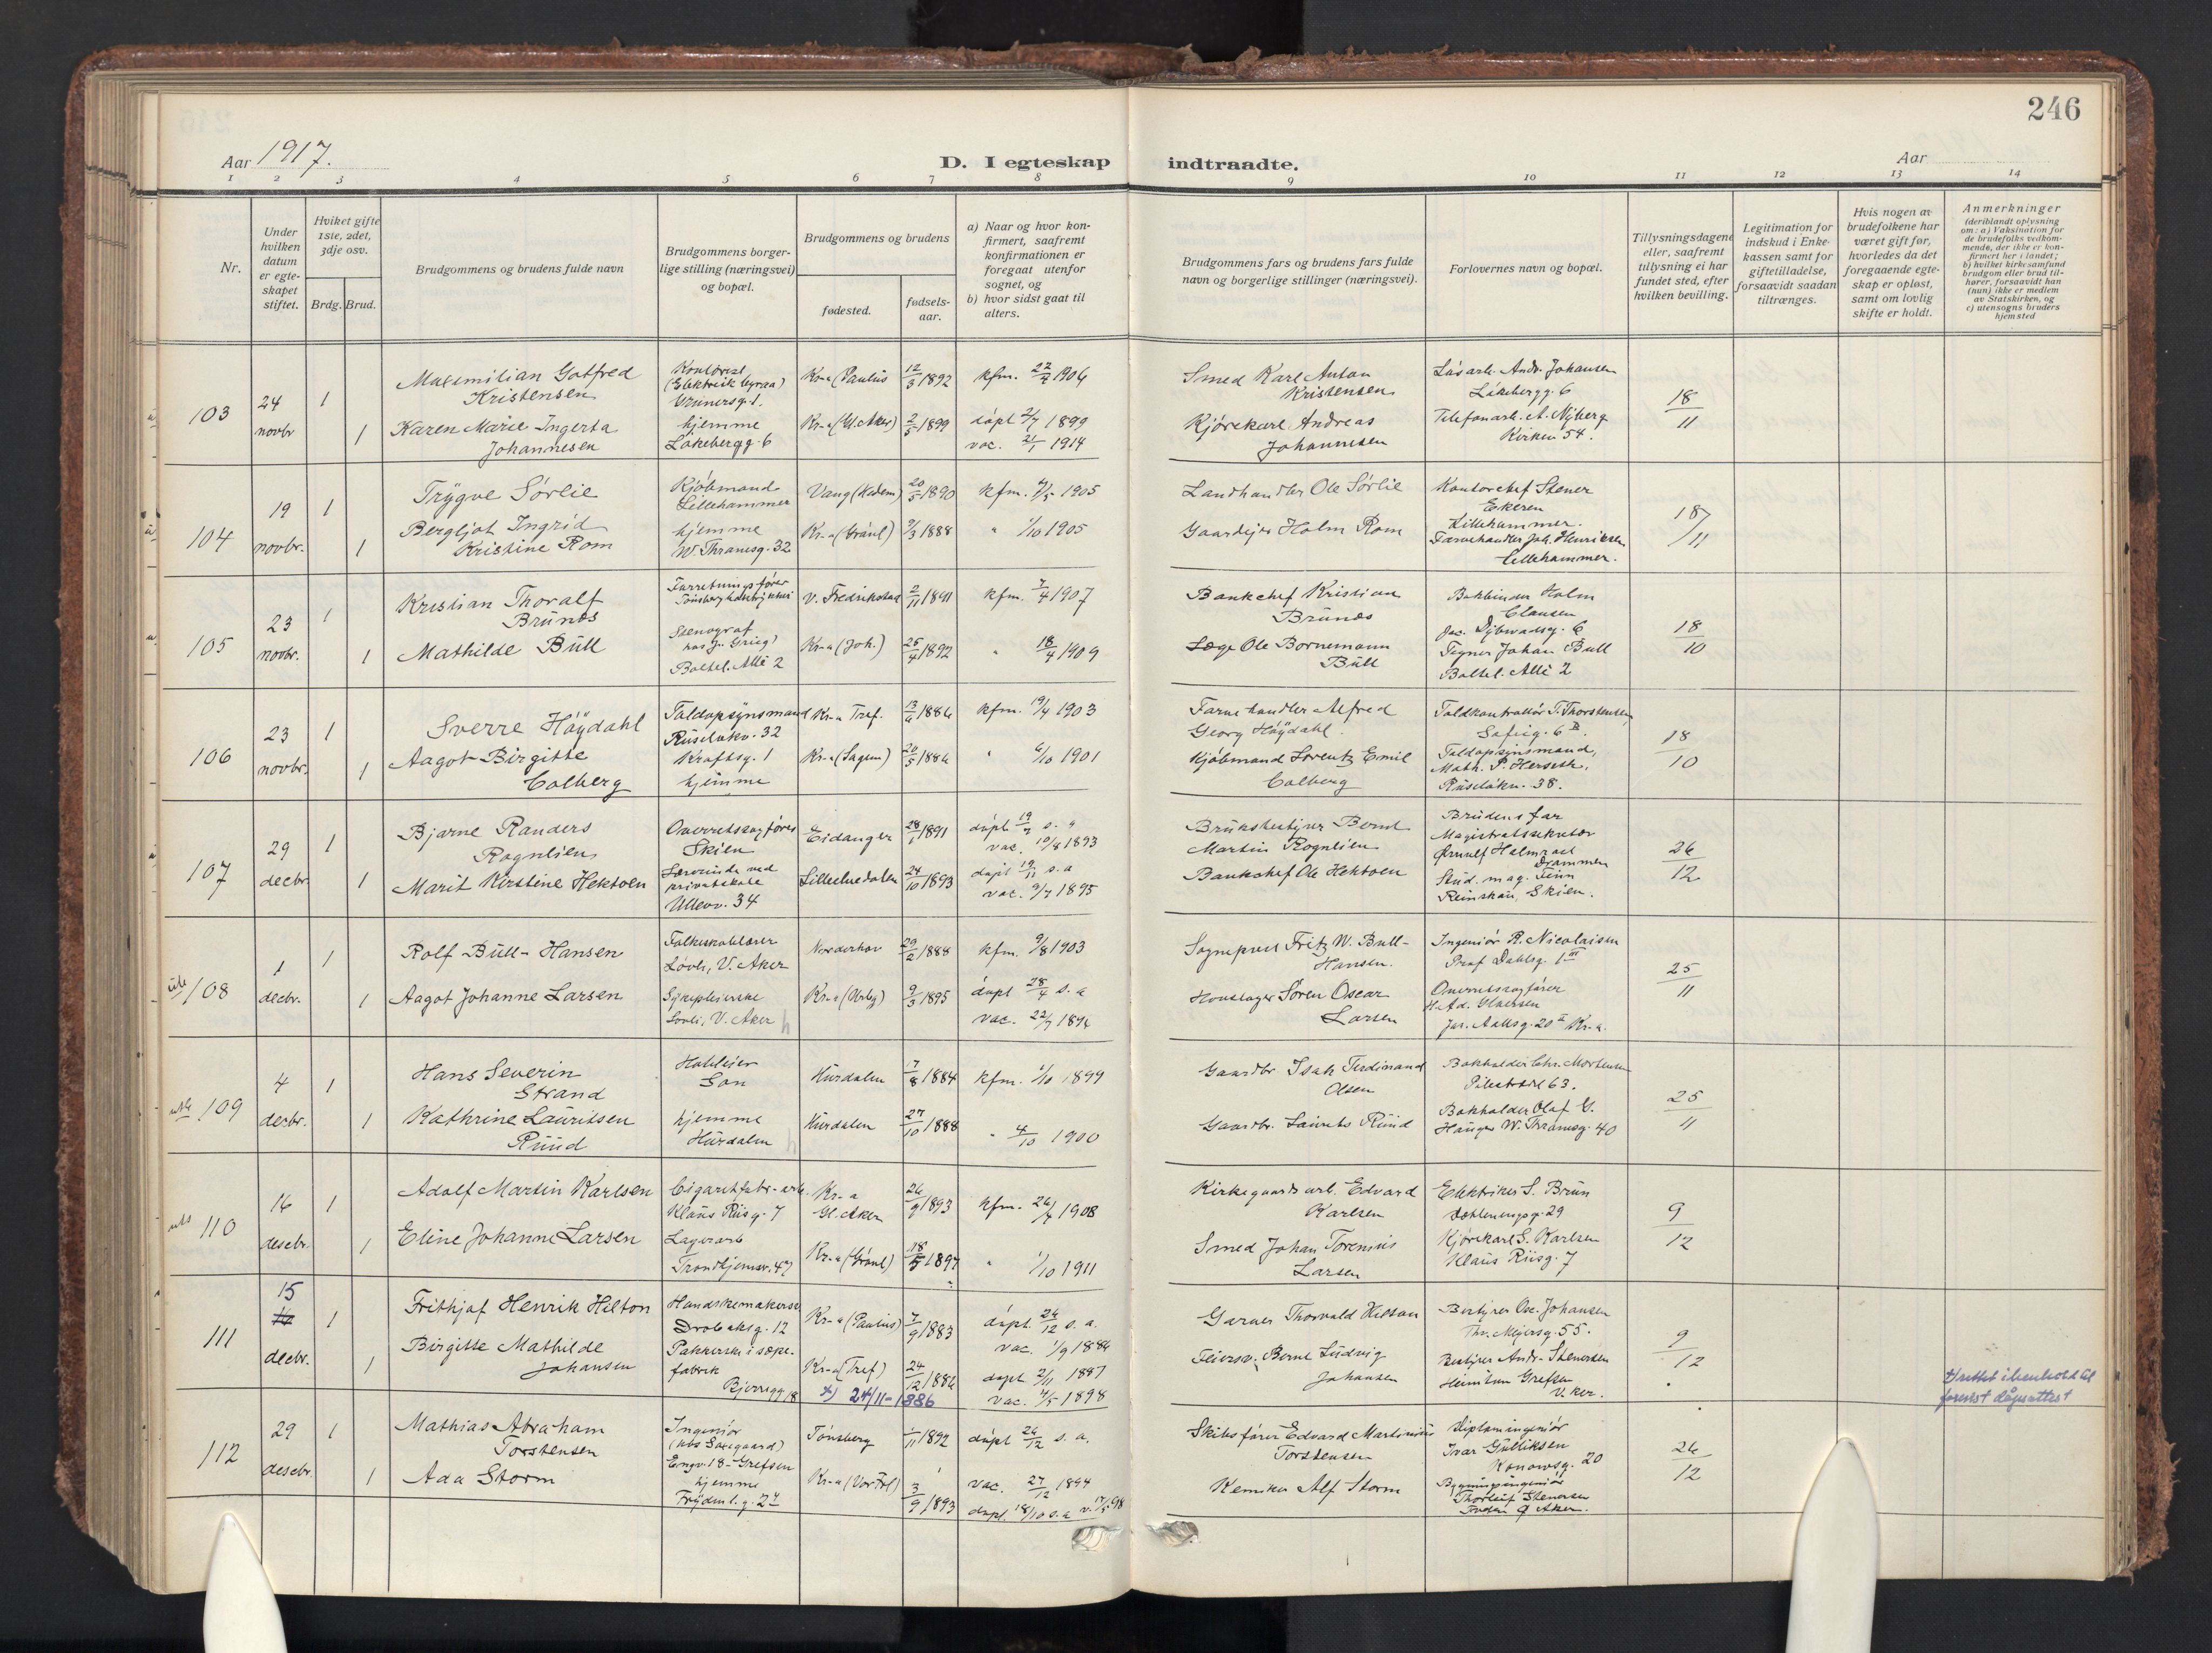 246
Aar 1917.
D. I egteskap indtraadte.
Aar
1 2 3 4 5 6 7 8 9 10 11 12 13 14
Nr.
Under hvilken datum er egte-skapet stiftet.
Hvilket gifte 1ste, 2det, 3dje osv.
Brdg. Brud.
Brudgommens og brudens fulde navn
Brudgommens borger-lige stilling (næringsvei) og bopæl.
Brudgommens og brudens
fødested.
fødsels-aar.
a) Naar og hvor kon-firmert, saafremt konfirmationen er foregaat utenfor sognet, og
b) hvor sidst gaat til alters.
Brudgommens fars og brudens fars fulde navn og borgerlige stillinger (næringsvei).
Forlovernes navn og bopæl.
Tillysningsdagene eller, saafremt tillysning ei har fundet sted, efter hvilken bevilling.
Legitimation for indskud i Enke-kassen samt for giftetilladelse, forsaavidt saadan tiltrænges.
Hvis nogen av brudefolkene har været gift før, hvorledes da det foregaaende egte-skap er opløst, samt om lovlig skifte er holdt.
Anmerkninger
(deriblandt oplysning om: a) Vaksination for de brudefolks vedkom-mende, der ikke er kon-firmert her i landet; b) hvilket kirkesamfund brudgom eller brud til-hører, forsaavidt han (hun) ikke er medlem av Statskirken, og c) utensogns bruders hjemsted
103 24 novbr 1 1
Maximilian Gotfred Kristensen
Kontorist (Elektrisk byraa) Grünersg. 1.
Kr-a (Paulus) 12/3 1892 kfm. 22/4 1906
Smed Karl Anton Kristensen
Låsarb. Andr. Johansen Lakebergg. 6
18/11
Karen Marie Ingerta Johannesen
hjemme Lakebergg. 6
Kr-a (Gl. Aker) 2/5 1899 döpt 2/7 1899 vac. 21/1 1914
Kjørekarl Andreas Johannesen
Telefonarb. A. Nyberg Kirkev 54.
104 19 novbr. 1 1
Trygve Sørlie
Kjøbmand Lillehammer
Vang (Hedem) 20/5 1890 kfm. 4/5 1905
Landhandler Ole Sørlie
Kontorchef Stener Ekeren Lillehammer.
18/11
Bergljot Ingrid Kristine Rom
hjemme W. Thranesg. 32
Kr-a (Grönl) 9/3 1888 " 1/10 1905
Gaardejer Holm Rom
Farvehandler Joh. Henriksen Lillehammer.
105 23 novbr. 1 1
Kristian Thoralf Brünæs
Forretningsfører
v. Fredrikstad 2/11 1891 kfm. 7/4 1907
Bankchef Kristian Brünæs
Bokbinder Holm Clausen Jac. Dybwadsg. 6
18/10
Mathilde Büll
Stenograf hos J. Grieg) Baltel. Allé 2
Kr-a (Joh.) 25/4 1892 " 18/4 1909
Læge Ole Bornemann Büll
Tegner Johan Bull Baltel. Allé 2
106 23 novbr. 1 1
Sverre Höydahl
Toldopsynsmand Rüselökv. 32
Kr-a Tref. 13/6 1886 kfm. 19/4 1903
Farvehandler Alfred Georg Höydahl.
Toldkontrollør T. Thorstensen, Sofieg. 6 B.
18/10
Aagot Birgitte Colberg
Kraftsg. 1 hjemme
Kr-a (Sagen) 20/5 1886 " 6/10 1901
Kjøbmand Lorentz Emil Colberg
Toldopsynsmand, Math. P. Herseth, Rüselökv. 38.
107 29 decbr 1 1
Bjarne Randers Rognlien
Overretssagfører Skien
Eidanger 28/1 1891 döpt 19/7 s. a vac. 10/8 1893
Brüksbestyrer Bernt Martin Rognlien
Brüdens far Magistratssekretær Ørnulf Holmraet Drammen
26/12
Marit Kirstine Hektoen
Lærerinde ved privatskole Ullevv. 34
Lilleelvedalen 24/10 1893 döpt 19/11 s. a vac. 9/7 1895
Bankchef Ole Hektoen
Stud. mag. Finn Reinskau, Skien.
108 1 decbr. 1 1
Rolf Büll-Hansen
Folkeskolelærer Lövli, V. Aker
Norderhov 29/2 1888 kfm. 9/8 1903
Sogneprest Fritz W. Bull-Hansen.
Ingeniør R. Nicolaisen Prof Dahlsg. 1 III
25/11
Aagot Johanne Larsen
Sykepleierske Lövli, V. Aker
Kr-a (Uelu) 9/3 1895 döpt 28/4 s. a vac. 22/7 1896
Hovslager Søren Oscar Larsen
Overretssagfører H. Ad. Jac. Aallsg. 20 II Kr-a.
109 4 decbr. 1 1
Hans Severin Strand
Hoteleier Son
Hürdalen 7/8 1884 kfm. 1/10 1899
Gaardbr Isak Ferdinand Olsen
Bokholder Chr. Mortensen Pilestræde 63.
25/11
Kathrine Lauritsen Rüud
hjemme Hürdalen
Hürdalen 27/10 1888 " 4/10 1900
Gaardbr. Laurits Rüud
Bokholder Olaf G. Hauger W. Thranesg. 40
110 16 desebr. 1 1
Adolf Martin Karlsen
Cigaretfabr-arb. Klaus Riisg. 7
Kr-a Gl. Aker 26/9 1893 kfm. 26/4 1908
Kirkegaardsarb. Edvard Karlsen
Elektriker S. Brün Dæhlenengsg. 29
9/12
Eline Johanne Larsen
Lagerarb Trondhjemsv. 47
Kr-a (Grönl) 18/5 1897 " 1/10 1911
Smed Johan Torenius Larsen
Kjørekarl S. Karlsen Klaus Riisg. 7
111 15 decbr. 1 1
Frithjof Henrik Hilton
Handskemakersv Drøbaksg. 12
Kr-a (Paulus) 7/9 1883 döpt. 26/12 s. a. vac. 1/9 1886
Garver Thorvald Hilton
Bestyrer Osc. Johansen Thv. Meyersg. 55.
9/12
Birgitte Mathilde Johansen
Pakkerske i sæpe-fabrik Bjerregg 18
Kr-a (Tref) 24/12 1886 döpt 2/11 1887 vac. 4/5 1898
x) 24/11-1886
Feiersv. Bernt Ludvig Johansen
Bestyrer Andr. Stenersen Grefsen V. Aker.
x) rettet i henhold til forevist dåpsattest
112 29 desebr. 1 1
Mathias Abraham Torstensen
Ingeniør Engv. 18 - Grefsen
Tönsberg 1/11 1892 döpt 26/12 s. a.
Skibsfører Edvard Martinius Torstensen
Diplomingeniør Ivar Gülliksen Konowsg. 20
26/12
Ada Storm
hjemme Frydenl. g. 27
Kr-a (Vor Frl) 3/9 1893 vac. 27/12 1894 döpt. 18/10 s. a v. 17/5 98
Kemiker Alf Storm
Bygningsingeniør Thorleif Stenersen Aker.